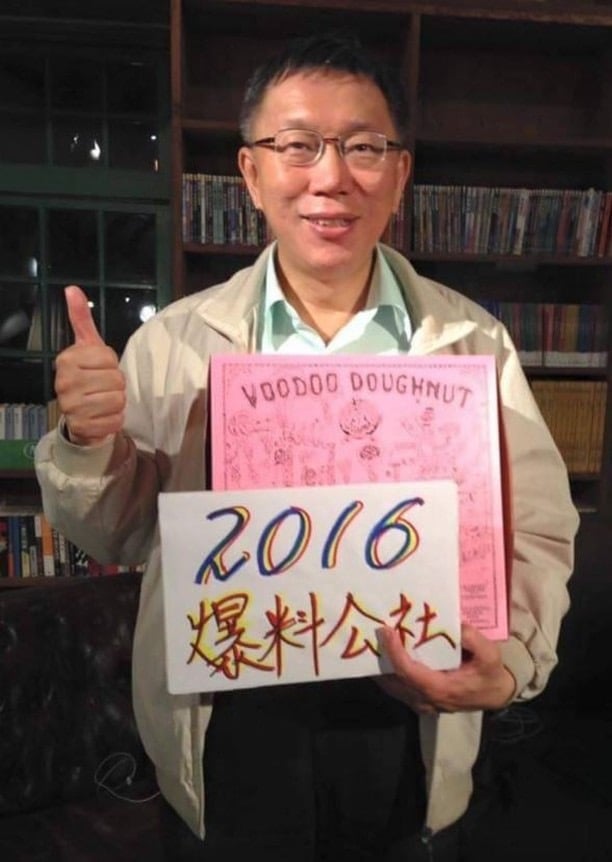 VOODOO DOUGHNUT
2016
爆料公社